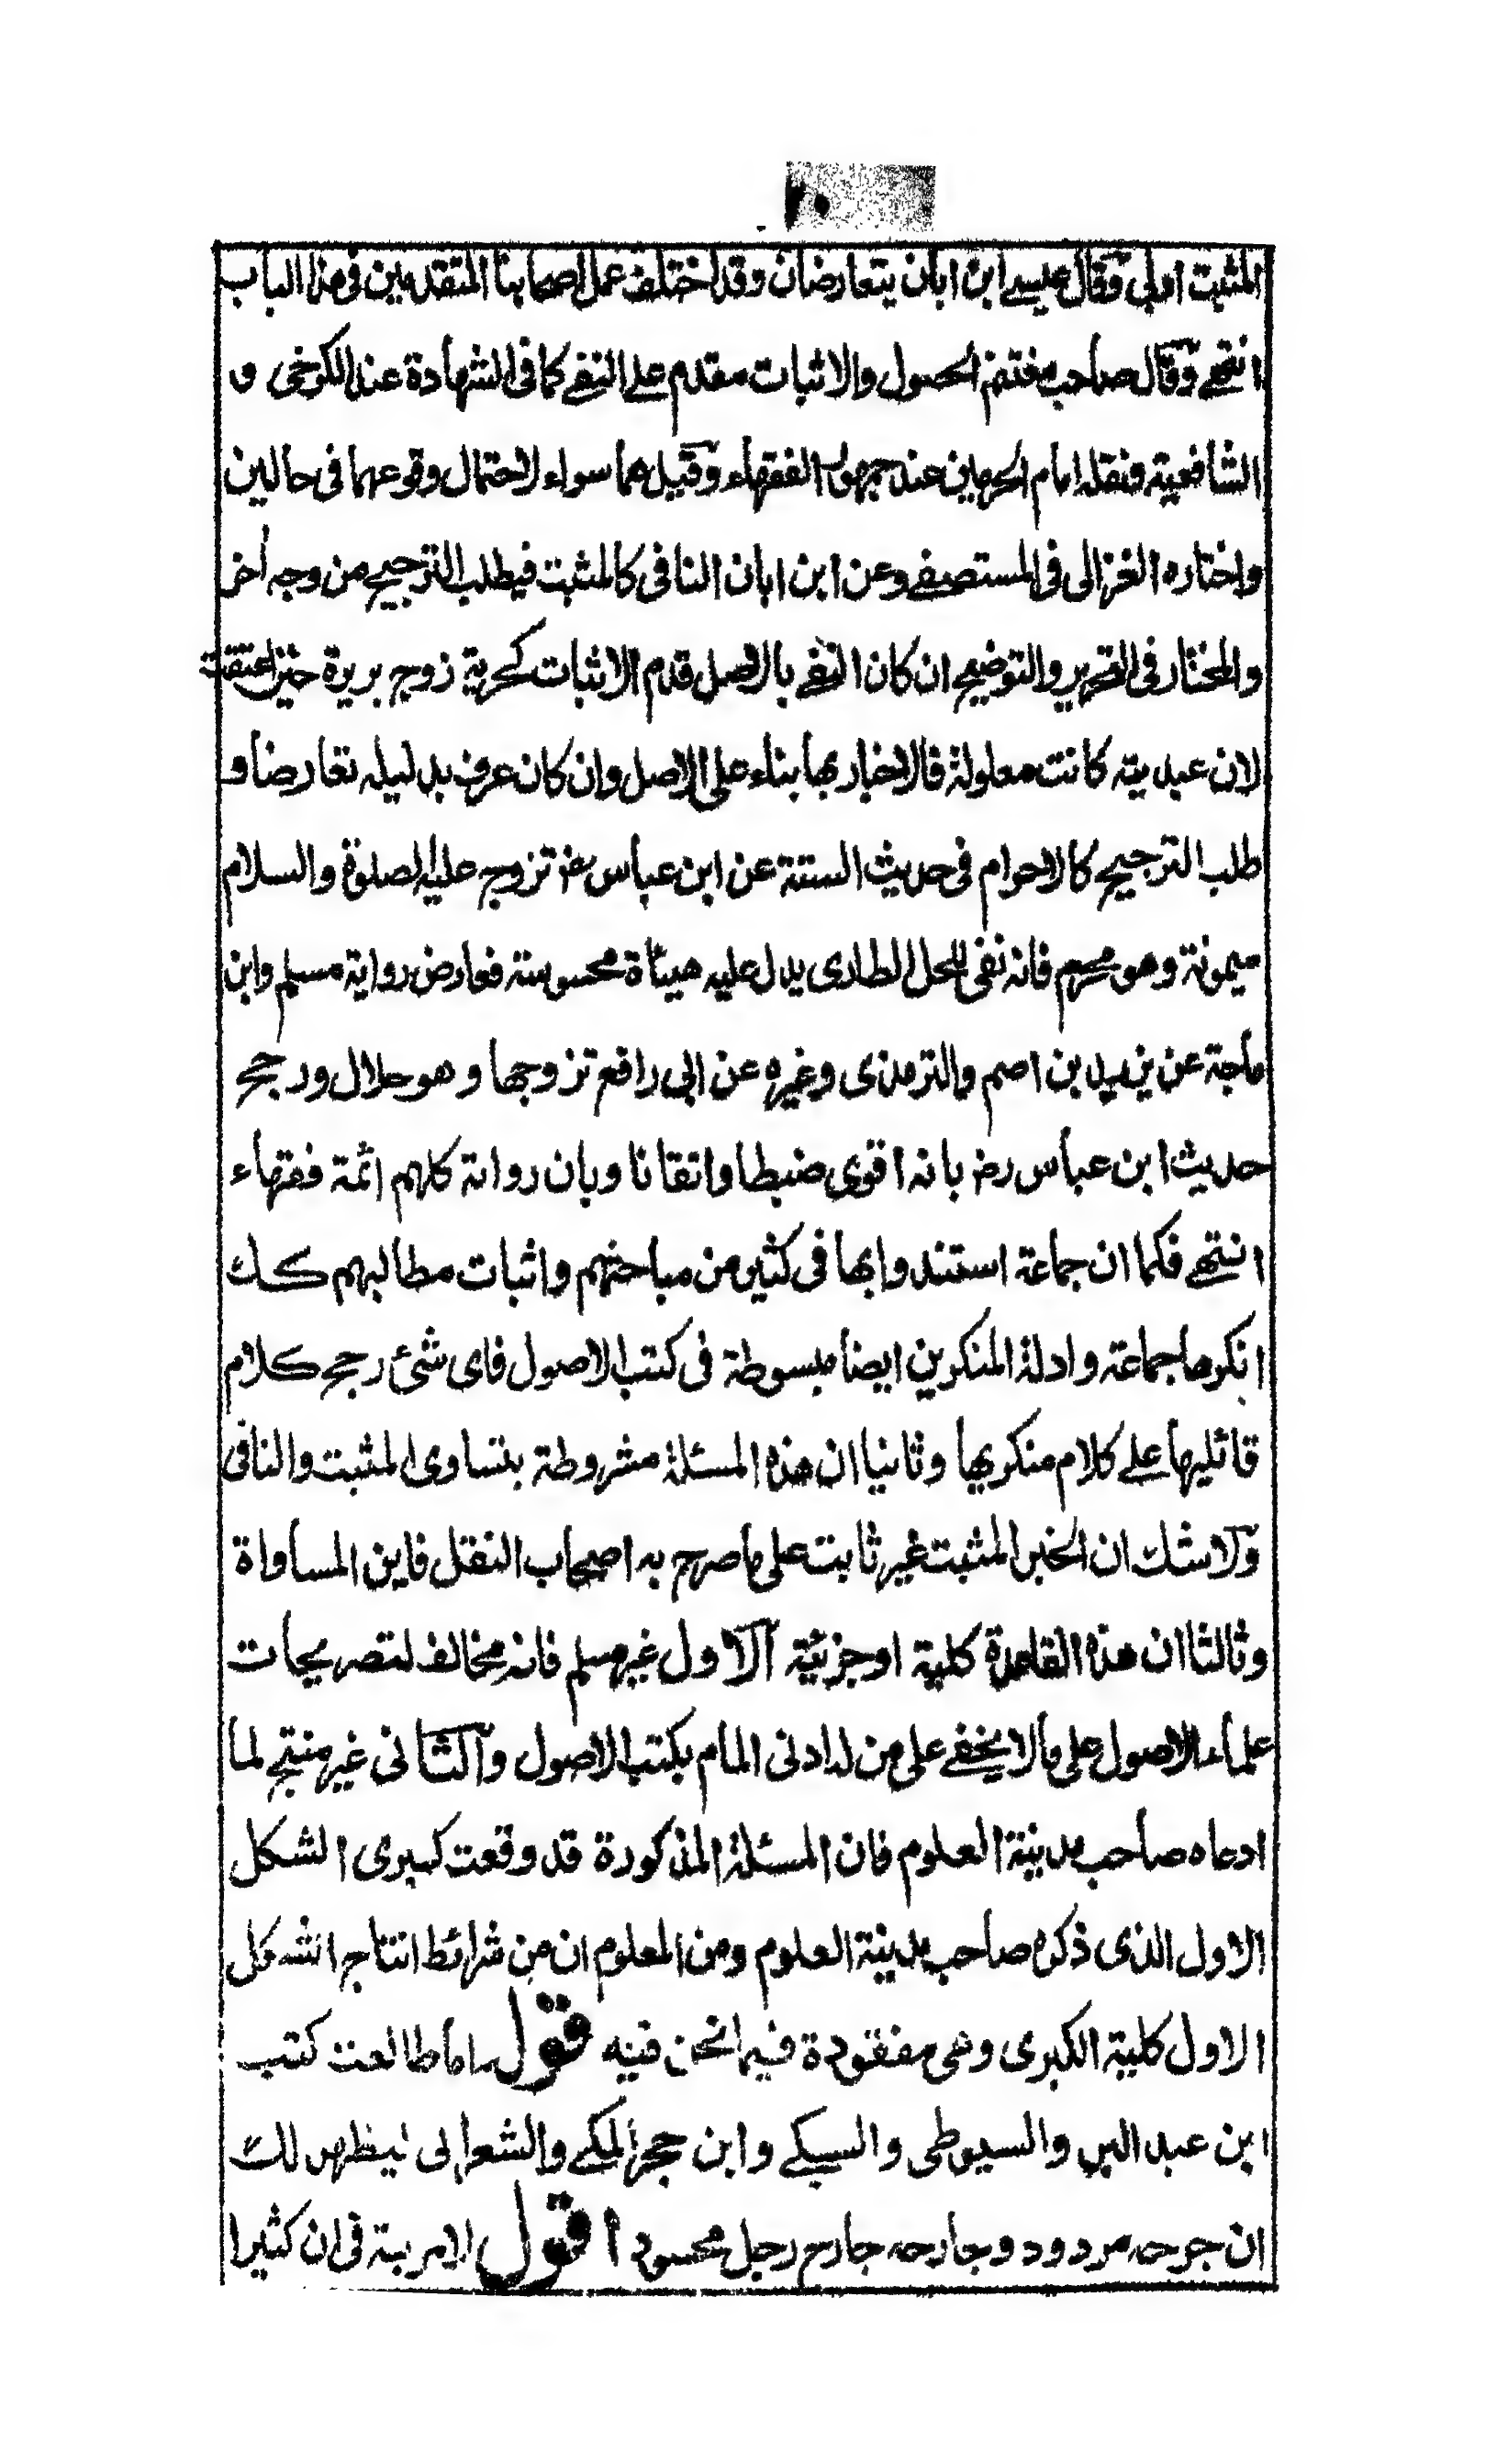 ٢٠
المثبت اولى وقال عيسے ابن ابان يتعارضان وقد اختلف عمل اصحابنا المتقدمين فى هذا الباب
انتهے وقال صاحب مغتنم الحصول والاثبات مقدم علے النفے كما فى الشهادة عند الكرخى و
الشافعية فنقله امام الحرمين عند جمهور الفقهاء وقيل هما سواء لاحتمال وقوعهما فى حالين
واختاره الغزالى فى المستصفے وعن ابن ابان النافى كالمثبت فيطلب الترجيح من وجه آخر
والمختار فى التحرير والتوضيح ان كان النفے بالاصل قدم الاثبات كحرية زوج بريرة حين اعتقت
لان عبديته كانت معلولة فالاخبار بها بناء على الاصل وان كان عرف بدليله تعارضا و
طلب الترجيح كالاحرام فى حديث الستة عن ابن عباس رضـ تزوج عليه الصلوة والسلام
ميمونة وهو محرم فانه نفى للحل الطارى يدل عليه هيئاة محسوسة فعارض رواية مسلم وابن
ماجة عن يزيد بن اصم والترمذى وغيره عن ابى رافع تزوجها وهو حلال ورجح
حديث ابن عباس رضـ بانه اقوى ضبطا واتقانا وبان رواته كلهم ائمة فقهاء
انتهے فكما ان جماعة استندوا بها فى كثير من مباحثهم واثبات مطالبهم كـك
انكرها جماعة وادلة المنكرين ايضا مبسوطة فى كتب الاصول فاى شئ رجح كلام
قائليها علے كلام منكريها وثانيا ان هذه المسئلة مشروطة بتساوى المثبت والنافى
ولاشك ان الخبر المثبت غير ثابت على ما صرح به اصحاب النقل فاين المساواة
وثالثا ان هذه القاعدة كلية او جزئية الاول غير مسلم فانه مخالف لتصريحات
علماء الاصول على مالا يخفے على من له ادنى المام بكتب الاصول والثانى غير منتج لما
ادعاه صاحب مدينة العلوم فان المسئلة المذكورة قد وقعت كبرى الشكل
الاول الذى ذكره صاحب مدينة العلوم ومن المعلوم ان من شرائط انتاج الشكل
الاول كلية الكبرى وهى مفقودة فيما نحن فيه قوله اما طالعت كتب
ابن عبد البر والسيوطى والسبكے وابن حجر المكے والشعرانى ليظهر لك
ان جرحه مردود وجارحه جارح رجل محسود اقول لا مرية فى ان كثيرا